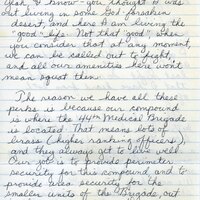 Yeah, I know - you thought I was
out living in some God forsaken
desert, and here I am living the
"good" life. Not that good, when
you consider that at any moment,
we can be called out to fight,
and all our amenities here won't
mean squat then.
The reason we have all these
perks is because our compound
is where the 44th Medical Brigade
is located. That means lots of
brass (higher ranking officers),
and they always get to live well.
Our job is to provide perimeter
security for this compound, and to
provide area security for the
smaller units of the Brigade out